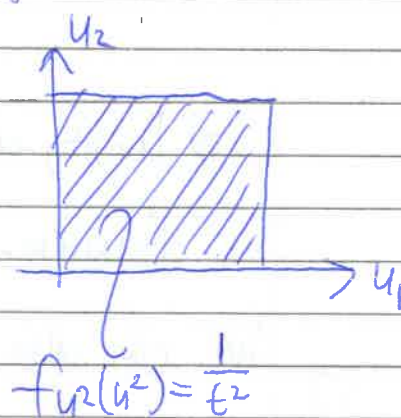 u₂
u₁
f_{u²}(u²) = 1/t²